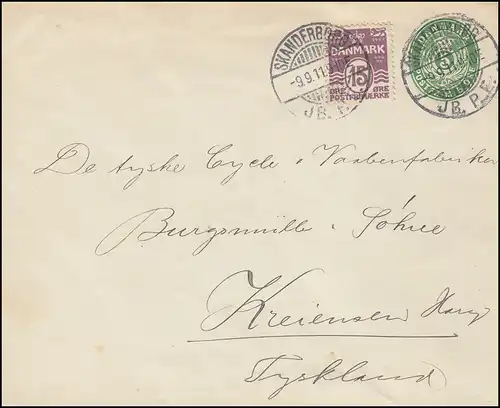 SKANDERBORG
-9.9.11.
JB. P.E.
DANMARK
15
ØRE ØRE
POSTFRIMÆRKE
5
JB. P.E.
De tyske Cycle & Vaabenfabriker
Burgsmülle & Söhne
Kreiensen Harz
Tyskland